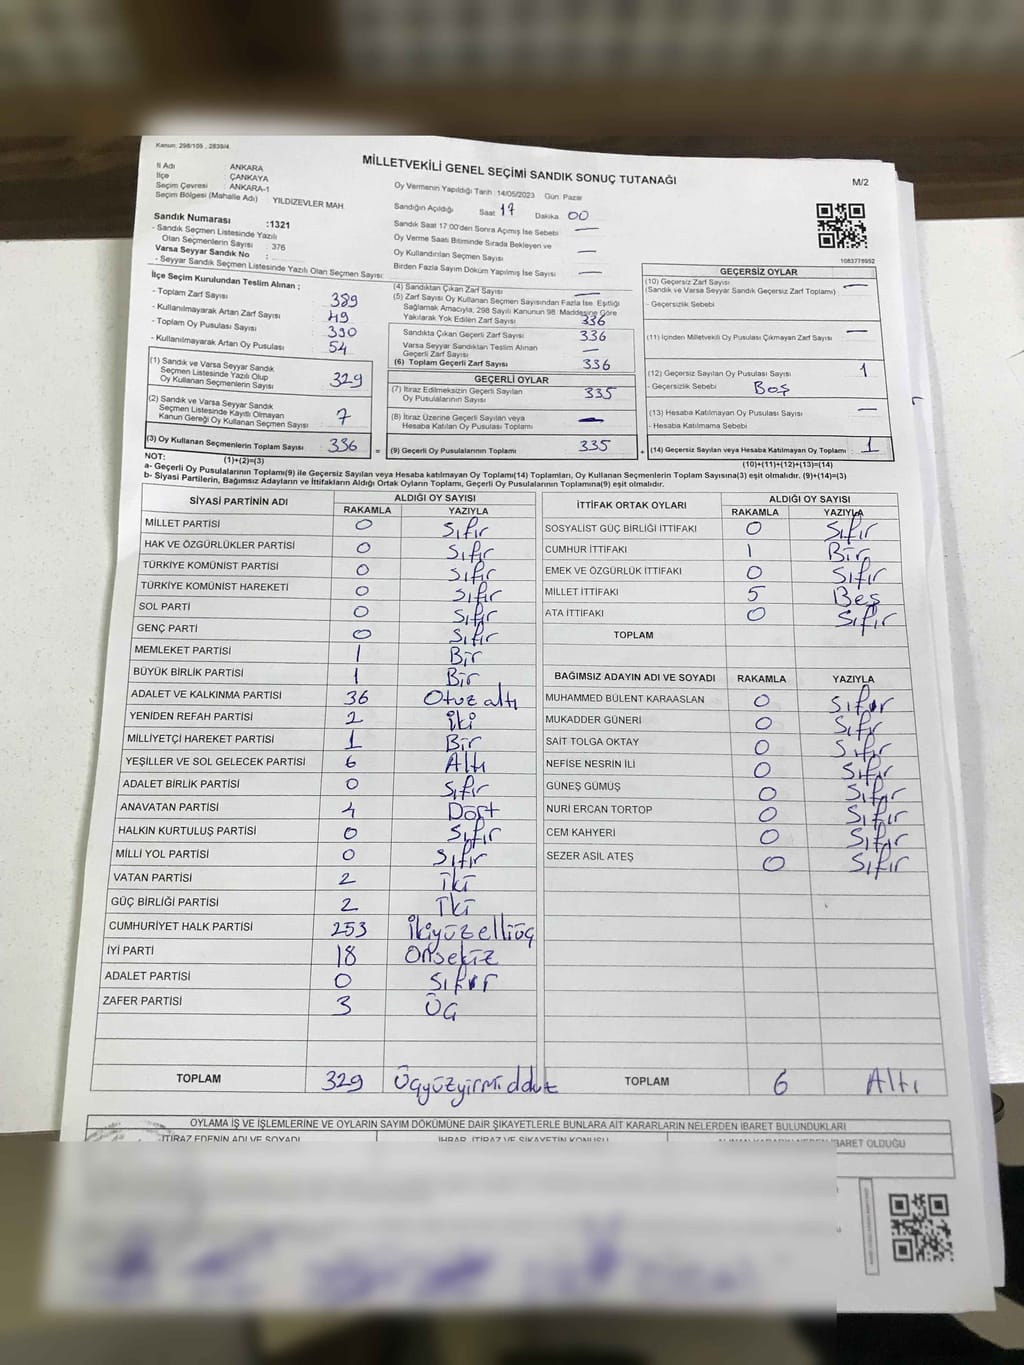 Kanun: 298/105 , 2839/4
MİLLETVEKİLİ GENEL SEÇİMİ SANDIK SONUÇ TUTANAĞI
M/2
İl Adı : ANKARA
İlçe : ÇANKAYA
Seçim Çevresi : ANKARA-1
Seçim Bölgesi (Mahalle Adı) : YILDIZEVLER MAH.
Sandık Numarası :1321
- Sandık Seçmen Listesinde Yazılı
Olan Seçmenlerin Sayısı : 376
Varsa Seyyar Sandık No :
- Seyyar Sandık Seçmen Listesinde Yazılı Olan Seçmen Sayısı:
Oy Vermenin Yapıldığı Tarih :14/05/2023 Gün: Pazar
Sandığın Açıldığı Saat 17 Dakika 00
Sandık Saat 17:00'den Sonra Açımış İse Sebebi —
Oy Verme Saati Bitiminde Sırada Bekleyen ve
Oy Kullandırılan Seçmen Sayısı —
Birden Fazla Sayım Döküm Yapılmış İse Sayısı —
1083778952
İlçe Seçim Kurulundan Teslim Alınan ;
- Toplam Zarf Sayısı 389
- Kullanılmayarak Artan Zarf Sayısı 49
- Toplam Oy Pusulası Sayısı 390
- Kullanılmayarak Artan Oy Pusulası 54
(1) Sandık ve Varsa Seyyar Sandık
Seçmen Listesinde Yazılı Olup
Oy Kullanan Seçmenlerin Sayısı 329
(2) Sandık ve Varsa Seyyar Sandık
Seçmen Listesinde Kayıtlı Olmayan
Kanun Gereği Oy Kullanan Seçmen Sayısı 7
(3) Oy Kullanan Seçmenlerin Toplam Sayısı 336 =
(1)+(2)=(3)
(4) Sandıktan Çıkan Zarf Sayısı —
(5) Zarf Sayısı Oy Kullanan Seçmen Sayısından Fazla İse, Eşitliği
Sağlamak Amacıyla, 298 Sayılı Kanunun 98. Maddesine Göre
Yakılarak Yok Edilen Zarf Sayısı 336
Sandıkta Çıkan Geçerli Zarf Sayısı 336
Varsa Seyyar Sandıktan Teslim Alınan
Geçerli Zarf Sayısı —
(6) Toplam Geçerli Zarf Sayısı 336
GEÇERLİ OYLAR
(7) İtiraz Edilmeksizin Geçerli Sayılan
Oy Pusulalarının Sayısı 335
(8) İtiraz Üzerine Geçerli Sayılan veya
Hesaba Katılan Oy Pusulası Toplamı —
(9) Geçerli Oy Pusulalarının Toplamı 335 +
GEÇERSİZ OYLAR
(10) Geçersiz Zarf Sayısı
(Sandık ve Varsa Seyyar Sandık Geçersiz Zarf Toplamı) —
- Geçersizlik Sebebi
(11) İçinden Milletvekili Oy Pusulası Çıkmayan Zarf Sayısı —
(12) Geçersiz Sayılan Oy Pusulası Sayısı 1
- Geçersizlik Sebebi Boş
(13) Hesaba Katılmayan Oy Pusulası Sayısı —
- Hesaba Katılmama Sebebi
(14) Geçersiz Sayılan veya Hesaba Katılmayan Oy Toplamı 1
(10)+(11)+(12)+(13)=(14)
NOT:
a- Geçerli Oy Pusulalarının Toplamı(9) ile Geçersiz Sayılan veya Hesaba katılmayan Oy Toplamı(14) Toplamları, Oy Kullanan Seçmenlerin Toplam Sayısına(3) eşit olmalıdır. (9)+(14)=(3)
b- Siyasi Partilerin, Bağımsız Adayların ve İttifakların Aldığı Ortak Oyların Toplamı, Geçerli Oy Pusulalarının Toplamına(9) eşit olmalıdır.
SİYASİ PARTİNİN ADI ALDIĞI OY SAYISI
RAKAMLA YAZIYLA
MİLLET PARTİSİ 0 Sıfır
HAK VE ÖZGÜRLÜKLER PARTİSİ 0 Sıfır
TÜRKİYE KOMÜNİST PARTİSİ 0 Sıfır
TÜRKİYE KOMÜNİST HAREKETİ 0 Sıfır
SOL PARTİ 0 Sıfır
GENÇ PARTİ 0 Sıfır
MEMLEKET PARTİSİ 1 Bir
BÜYÜK BİRLİK PARTİSİ 1 Bir
ADALET VE KALKINMA PARTİSİ 36 Otuz altı
YENİDEN REFAH PARTİSİ 2 İki
MİLLİYETÇİ HAREKET PARTİSİ 1 Bir
YEŞİLLER VE SOL GELECEK PARTİSİ 6 Altı
ADALET BİRLİK PARTİSİ 0 Sıfır
ANAVATAN PARTİSİ 4 Dört
HALKIN KURTULUŞ PARTİSİ 0 Sıfır
MİLLİ YOL PARTİSİ 0 Sıfır
VATAN PARTİSİ 2 İki
GÜÇ BİRLİĞİ PARTİSİ 2 İki
CUMHURİYET HALK PARTİSİ 253 İkiyüzelliüç
İYİ PARTİ 18 Onsekiz
ADALET PARTİSİ 0 Sıfır
ZAFER PARTİSİ 3 Üç
TOPLAM 329
İTTİFAK ORTAK OYLARI ALDIĞI OY SAYISI
RAKAMLA YAZIYLA
SOSYALİST GÜÇ BİRLİĞİ İTTİFAKI 0 Sıfır
CUMHUR İTTİFAKI 1 Bir
EMEK VE ÖZGÜRLÜK İTTİFAKI 0 Sıfır
MİLLET İTTİFAKI 5 Beş
ATA İTTİFAKI 0 Sıfır
TOPLAM
BAĞIMSIZ ADAYIN ADI VE SOYADI RAKAMLA YAZIYLA
MUHAMMED BÜLENT KARAASLAN 0 Sıfır
MUKADDER GÜNERİ 0 Sıfır
SAİT TOLGA OKTAY 0 Sıfır
NEFİSE NESRİN İLİ 0 Sıfır
GÜNEŞ GÜMÜŞ 0 Sıfır
NURİ ERCAN TORTOP 0 Sıfır
CEM KAHYERİ 0 Sıfır
SEZER ASİL ATEŞ 0 Sıfır
TOPLAM 6 Altı
OYLAMA İŞ VE İŞLEMLERİNE VE OYLARIN SAYIM DÖKÜMÜNE DAİR ŞİKAYETLERLE BUNLARA AİT KARARLARIN NELERDEN İBARET BULUNDUKLARI
İTİRAZ EDENİN ADI VE SOYADI İHBAR, İTİRAZ VE ŞİKAYETİN KONUSU ALINAN KARARIN NEDEN İBARET OLDUĞU